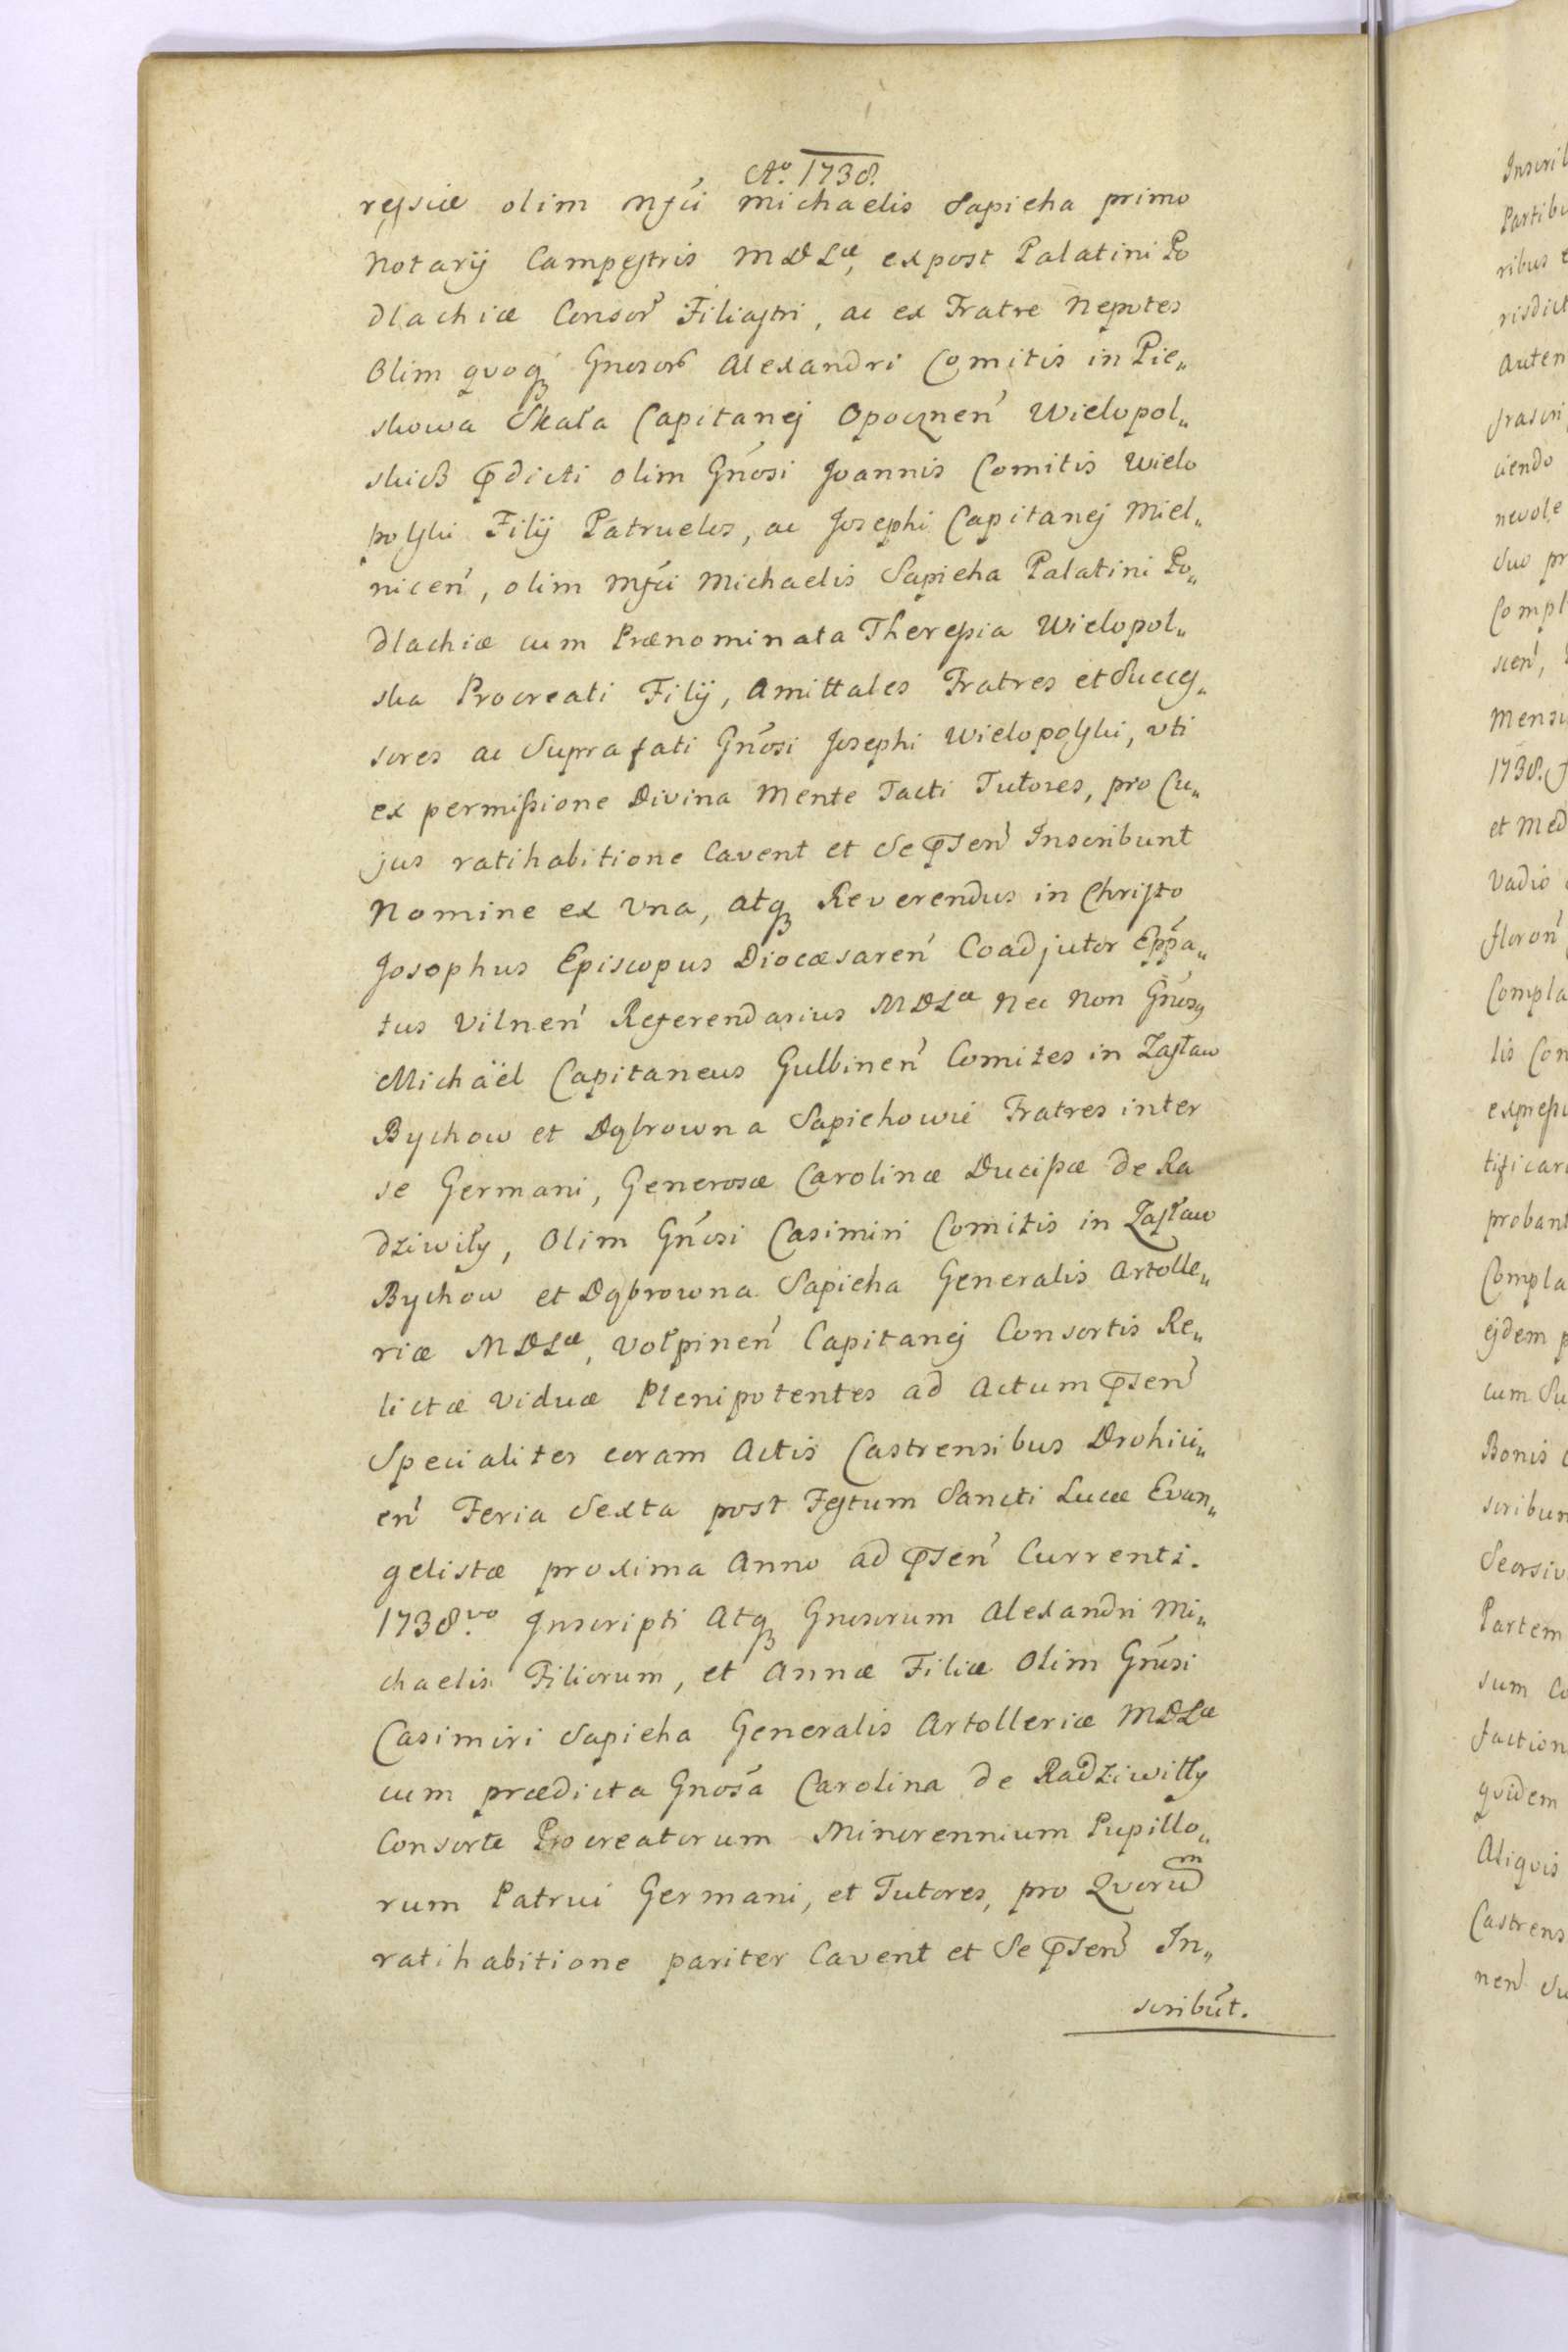 Aо. 1738.
ressiæ olim Mfci Michaelis Sapieha primo
Notarij Campestris MDLæ, expost Palatini Po
dlachiæ Consor Filiastri, ac ex Fratre Nepotes
Olim quoq Gnosor Alexandri Comitis in Pie„
skowa Skała Capitanej Opocznen Wielopol„
skich prdicti olim Gnosi Joannis Comitis Wielo
polski Filij Patrueles, ac Josephi Capitanej Miel„
nicen, olim Mfci Michaelis Sapieha Palatini Po„
dlachiæ cum Prænominata Theressia Wielopol„
ska Procreati Filij, Amittales Fratres et Succes„
sores ac Suprafati Gnosi Josephi Wielopolski, vti
ex permissione Divina Mente Tacti Tutores, pro Cu„
jus ratihabitione Cavent et Se prsen Inscribunt
Nomine ex Vna, atq Reverendus in Christo
Josephus Episcopus Diocæsaren Coadjutor Eppa„
tus Vilnen Referendarius MDLæ Nec Non Gnosq
Michaël Capitaneus Gulbinen Comites in Zasław
Bychow et Dąbrowna Sapiehowie Fratres inter
se Germani, Generosæ Carolinæ Ducissæ de Ra
dziwiły, Olim Gnosi Casimiri Comitis in Zasław
Bychow et Dąbrowna Sapieha Generalis Artolle„
riæ MDLæ, Vołpinen Capitanej Consortis Re„
lictæ Viduæ Plenipotentes ad Actum prsen
Specialiter coram Actis Castrensibus Drohici„
en Feria Sexta post Festum Sancti Lucæ Evan„
gelistæ proxima Anno ad prsen Currenti.
1738vo. Inscripti Atq Gnosorum Alexandri Mi„
chaelis Filiorum, et Annæ Filiæ Olim Gnosi
Casimiri Sapieha Generalis Artolleriæ MDLæ
cum prædicta Gnosa Carolina de Radziwiłły
Consorte Procreatorum Minorennium Pupillo„
rum Patrui Germani, et Tutores, pro Quorum
ratihabitione pariter Cavent et Se prsen In„
scribut.
Partibu
ribus
risdict
Auten
ciendo
nevole
Suo pr
Compl
1738.
et Med
Vadio
floron
Compla
lis Con
tificar
probant
Compla
ejdem
cum Su
Bonis
scribun
Seorsiv
Partem
sum Co
faction
quidem
Aliquis
Castrens
nen Su